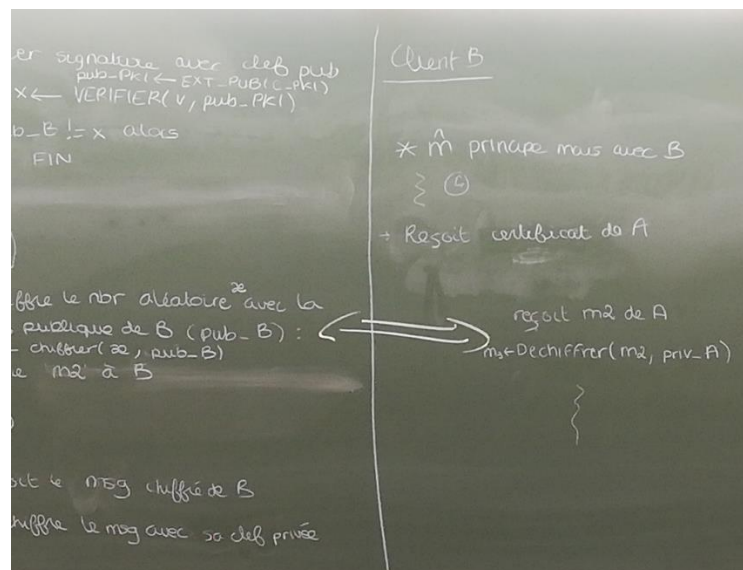 er signature avec clef pub
pub-PKI ← EXT_PUB(C-PKI)
x ← VERIFIER(v, pub-PKI)
b_B != x alors
FIN
)
ffre le nbr aléatoire æ avec la
publique de B (pub_B) :
← chiffrer(æ, pub_B)
e m2 à B
)
oit le msg chiffré de B
hiffre le msg avec sa clef privée
Client B
* m̂ principe mais avec B
4
→ Reçoit certificat de A
reçoit m2 de A
m3←Dechiffrer(m2, priv_A)